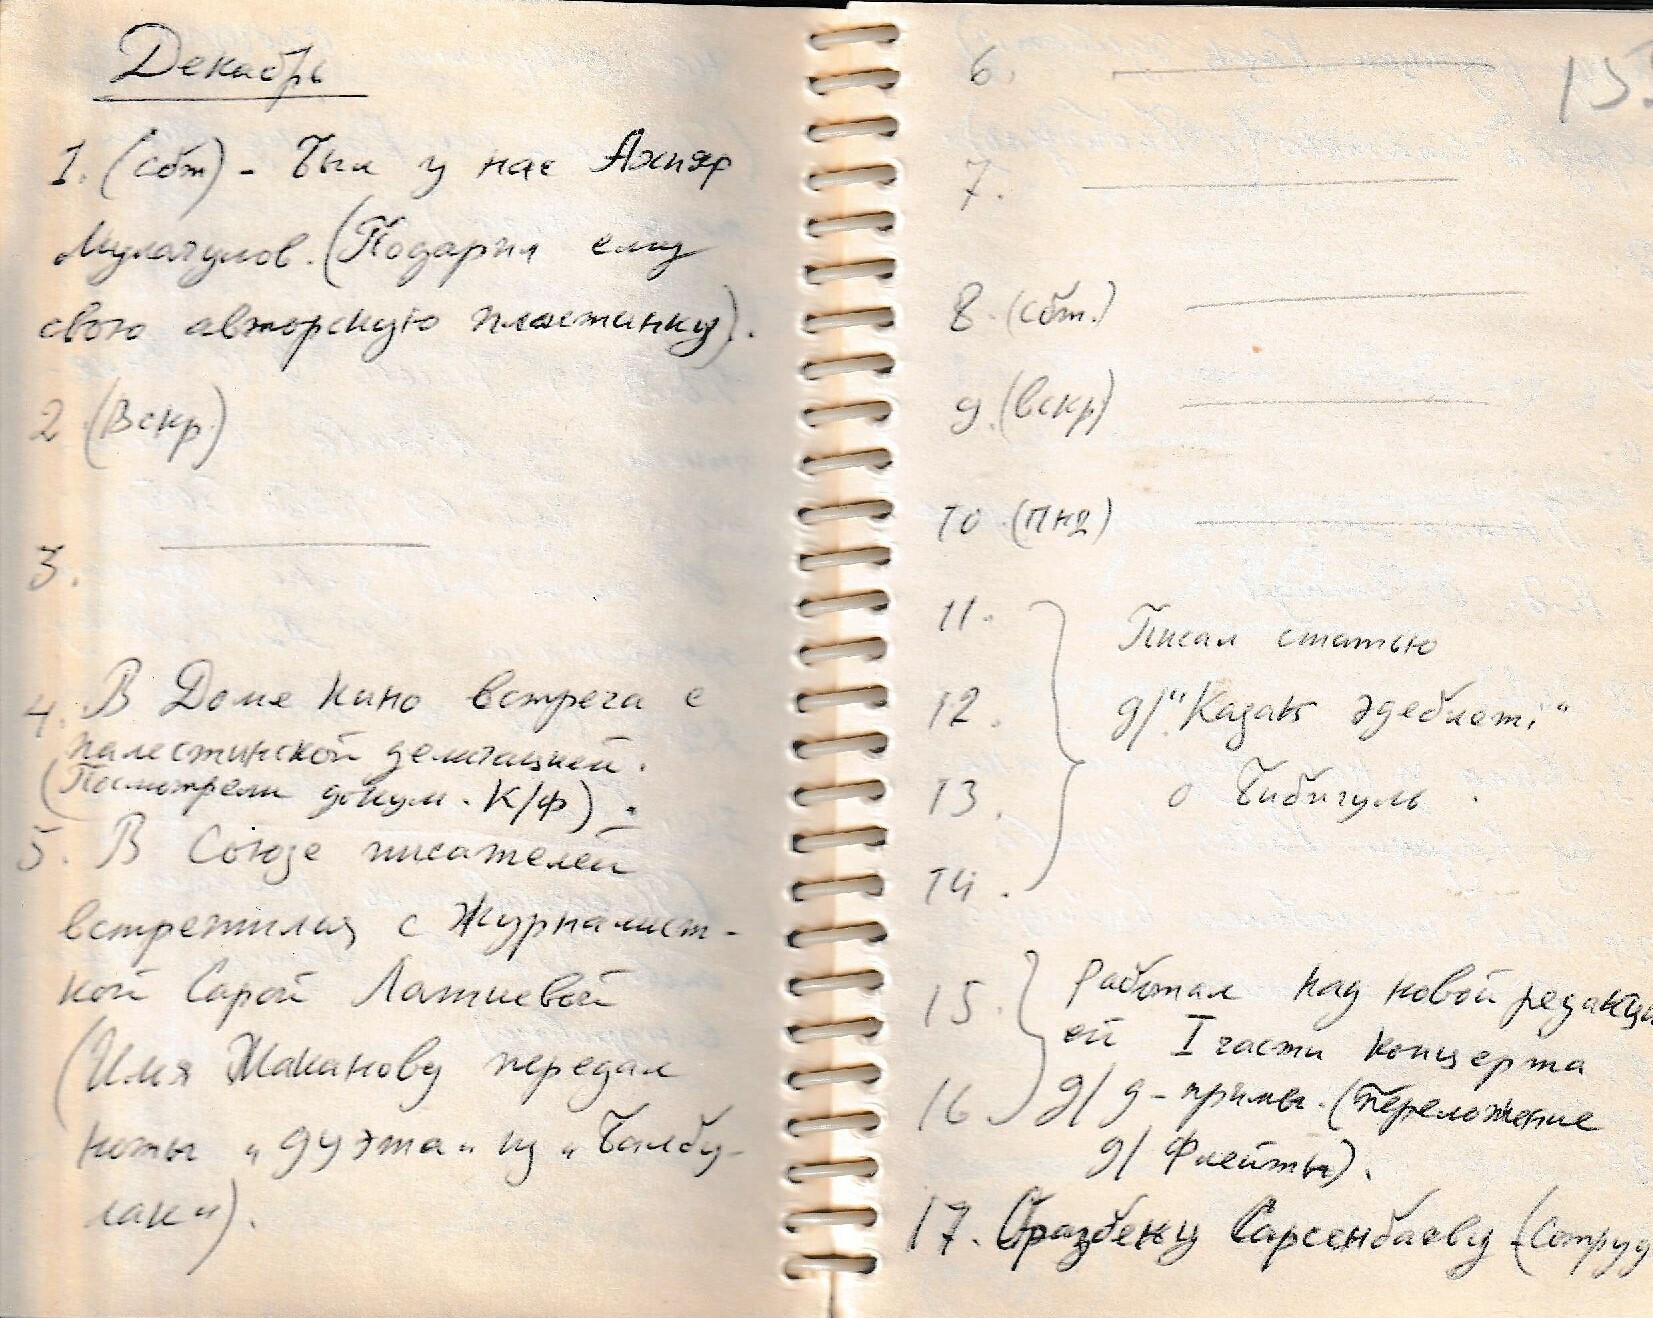 Декабрь
1. (сбт) - Был у нас Ахияр
Мулагулов. (Подарил ему
свою авторскую пластинку).
2 (Вскр.)
3.
4. В Доме кино встреча с
палестинской делегацией.
(Посмотрели докум. к/ф).
5. В Союзе писателей
встретился с журналист-
кой Сарой Латиевой
(Имя Жаканову передал
ноты "дуэта" из "Балбу-
лак").
6.
7.
8. (сбт.)
9. (вскр)
10 (пнд)
11.
12.
13.
14.
Писал статью
д/"Казак эдебиетi"
о Бибигуль.
15.
16.
Работал над новой редакци
ей I части концерта
д/ д-примы. (Переложение
д/ флейты).
17. Оразбеку Сарсенбаеву (сотруд